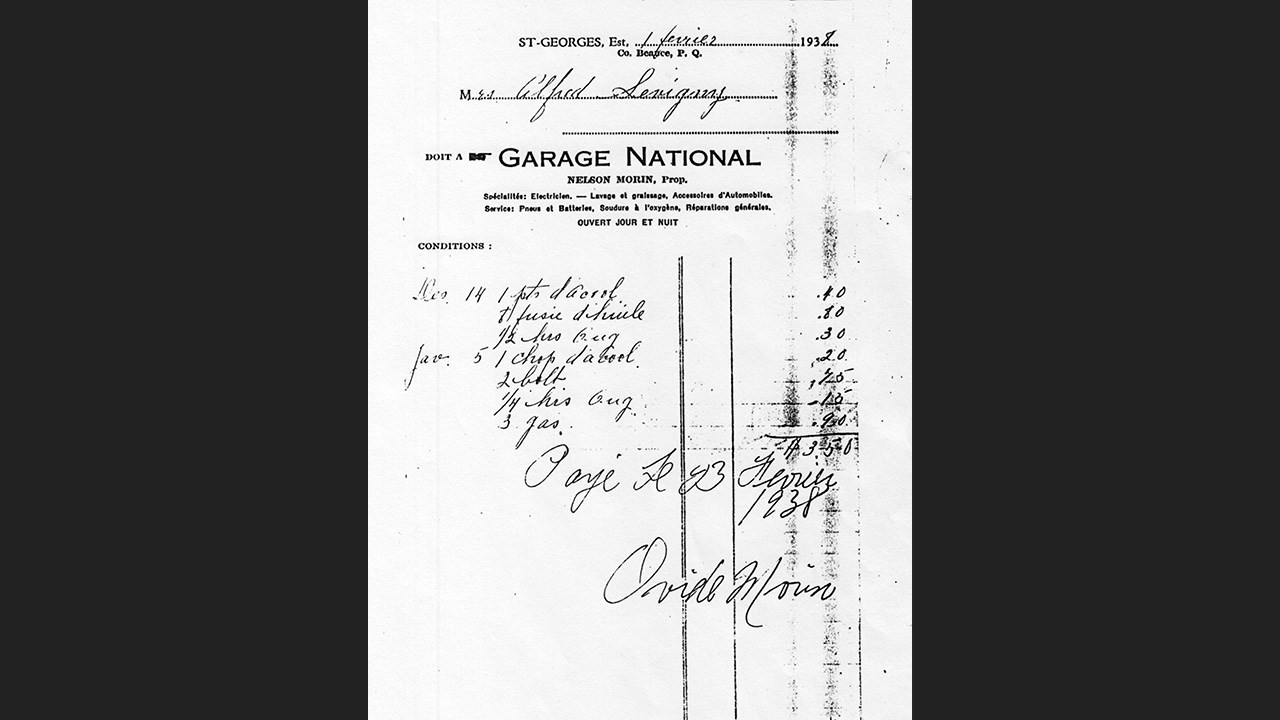 ST-GEORGES, Est, 1 fevrier 1938
Co. Beauce, P. Q.
Mrs Alfred Levigny
DOIT A GARAGE NATIONAL
NELSON MORIN, Prop.
Spécialités: Electricien. — Lavage et graissage, Accessoires d'Automobiles.
Service: Pneus et Batteries, Soudure à l'oxygène, Réparations générales.
OUVERT JOUR ET NUIT
CONDITIONS :
Dec. 14 1 pts d'acool .40
8 fusie d'huile .80
1/2 hrs Oug .30
Jav. 5 1 chop d'acool .20
2 bolt .75
1/4 hrs Oug .15
3 gas. .90
$ 3.50
Payé Le 23 Fevrier
1938
Ovide Morin